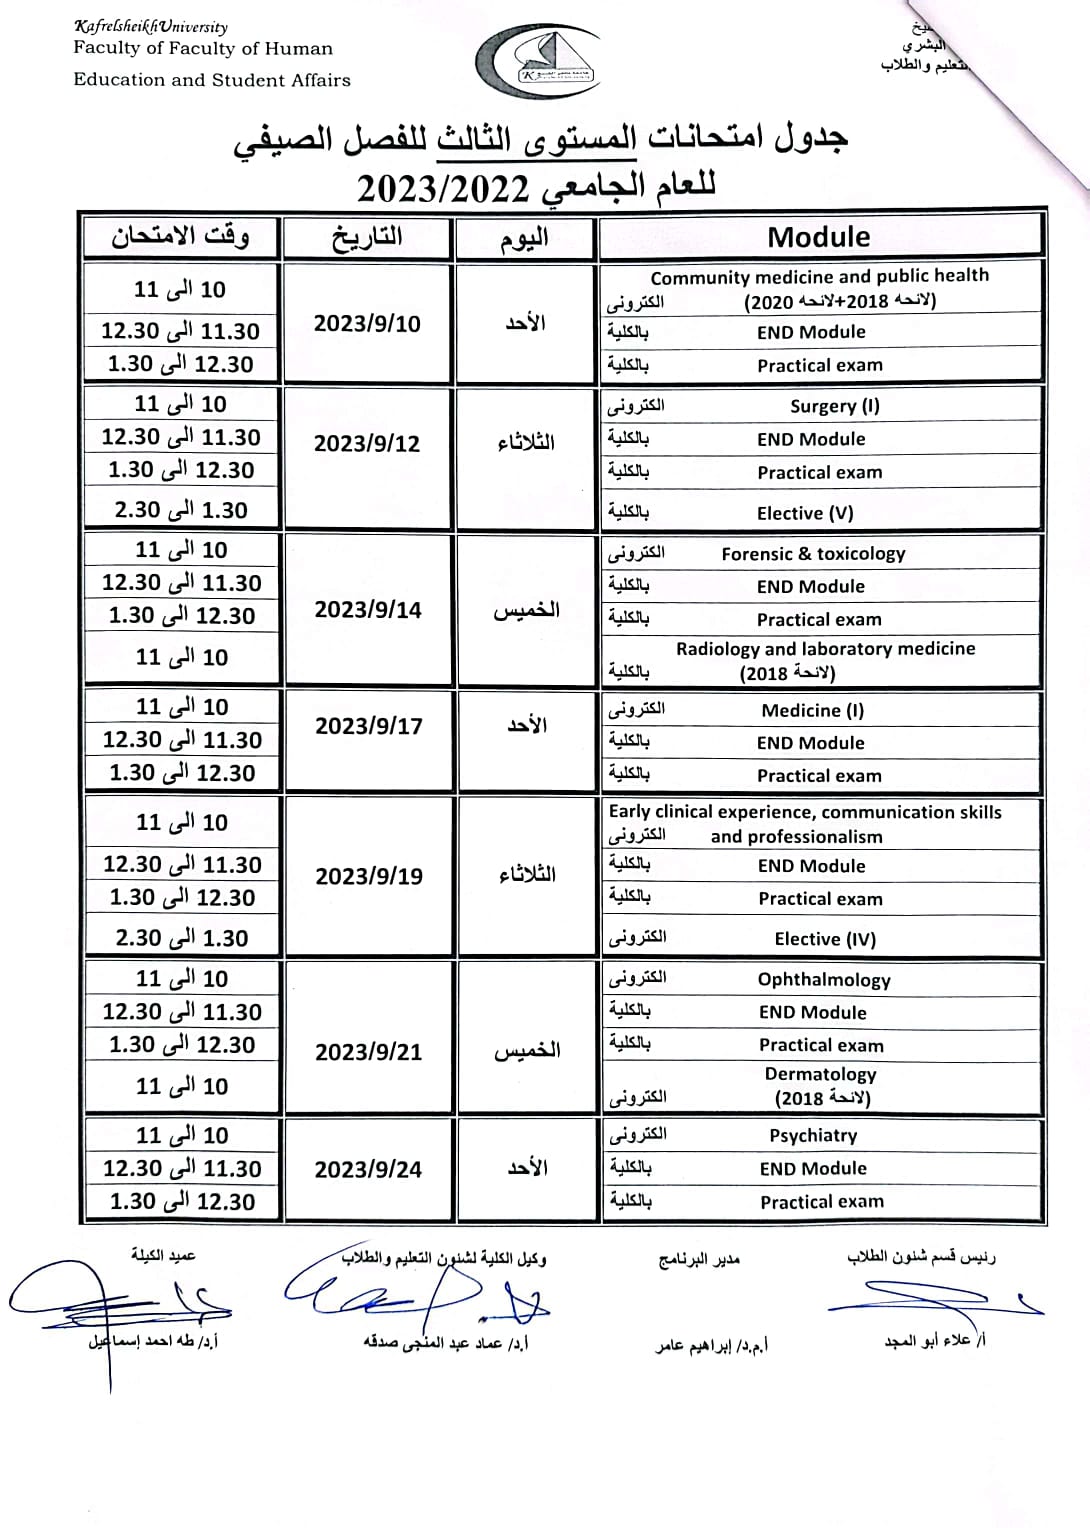 KafrelsheikhUniversity
Faculty of Faculty of Human
Education and Student Affairs
البشري
التعليم والطلاب
جدول امتحانات المستوى الثالث للفصل الصيفي
للعام الجامعي 2023/2022
Module اليوم التاريخ وقت الامتحان
Community medicine and public health
(لائحه 2018+لائحه 2020) الكترونى
10 الى 11
END Module بالكلية 11.30 الى 12.30
Practical exam بالكلية 12.30 الى 1.30
الأحد 2023/9/10
Surgery (I) الكترونى 10 الى 11
END Module بالكلية 11.30 الى 12.30
Practical exam بالكلية 12.30 الى 1.30
Elective (V) بالكلية 1.30 الى 2.30
الثلاثاء 2023/9/12
Forensic & toxicology الكترونى 10 الى 11
END Module بالكلية 11.30 الى 12.30
Practical exam بالكلية 12.30 الى 1.30
Radiology and laboratory medicine
(لائحة 2018) بالكلية
10 الى 11
الخميس 2023/9/14
Medicine (I) الكترونى 10 الى 11
END Module بالكلية 11.30 الى 12.30
Practical exam بالكلية 12.30 الى 1.30
الأحد 2023/9/17
Early clinical experience, communication skills
and professionalism الكترونى
10 الى 11
END Module بالكلية 11.30 الى 12.30
Practical exam بالكلية 12.30 الى 1.30
Elective (IV) الكترونى 1.30 الى 2.30
الثلاثاء 2023/9/19
Ophthalmology الكترونى 10 الى 11
END Module بالكلية 11.30 الى 12.30
Practical exam بالكلية 12.30 الى 1.30
Dermatology
(لائحة 2018) الكترونى
10 الى 11
الخميس 2023/9/21
Psychiatry الكترونى 10 الى 11
END Module بالكلية 11.30 الى 12.30
Practical exam بالكلية 12.30 الى 1.30
الأحد 2023/9/24
رئيس قسم شئون الطلاب مدير البرنامج وكيل الكلية لشئون التعليم والطلاب عميد الكيلة
أ/ علاء أبو المجد أ.م.د/ إبراهيم عامر أ.د/ عماد عبد المنجى صدقه أ.د/ طه احمد إسماعيل